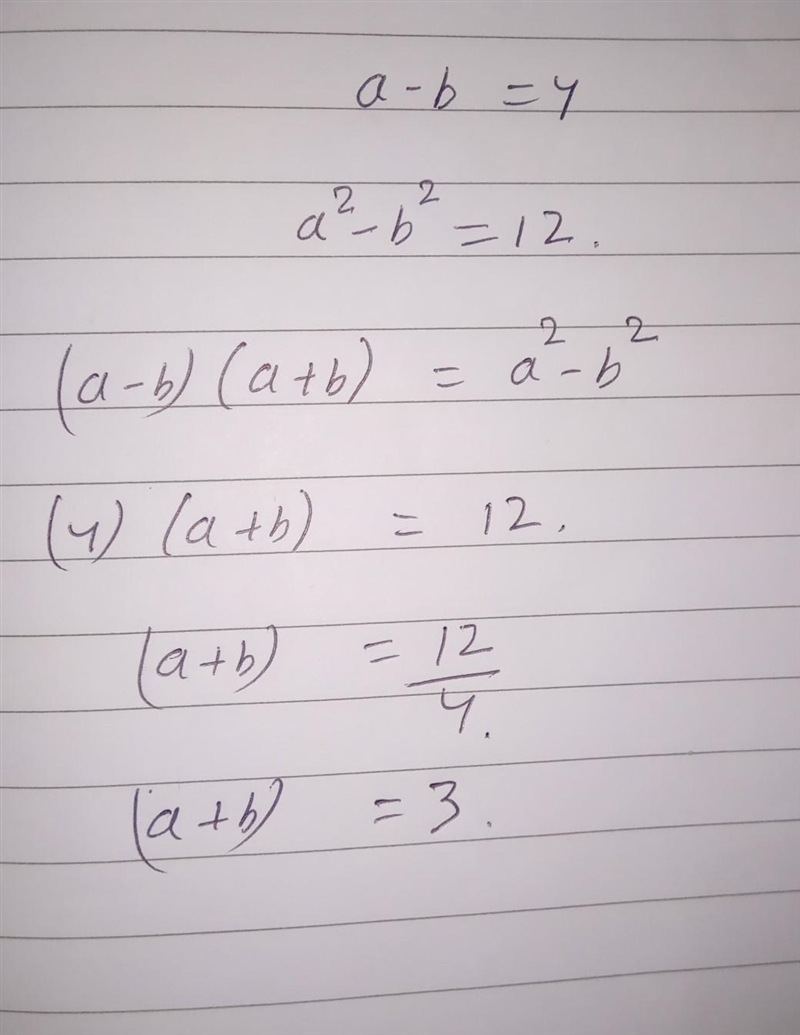 a - b = 4
a² - b² = 12.
(a - b) (a + b) = a² - b²
(4) (a + b) = 12.
(a + b) = 12/4.
(a + b) = 3.